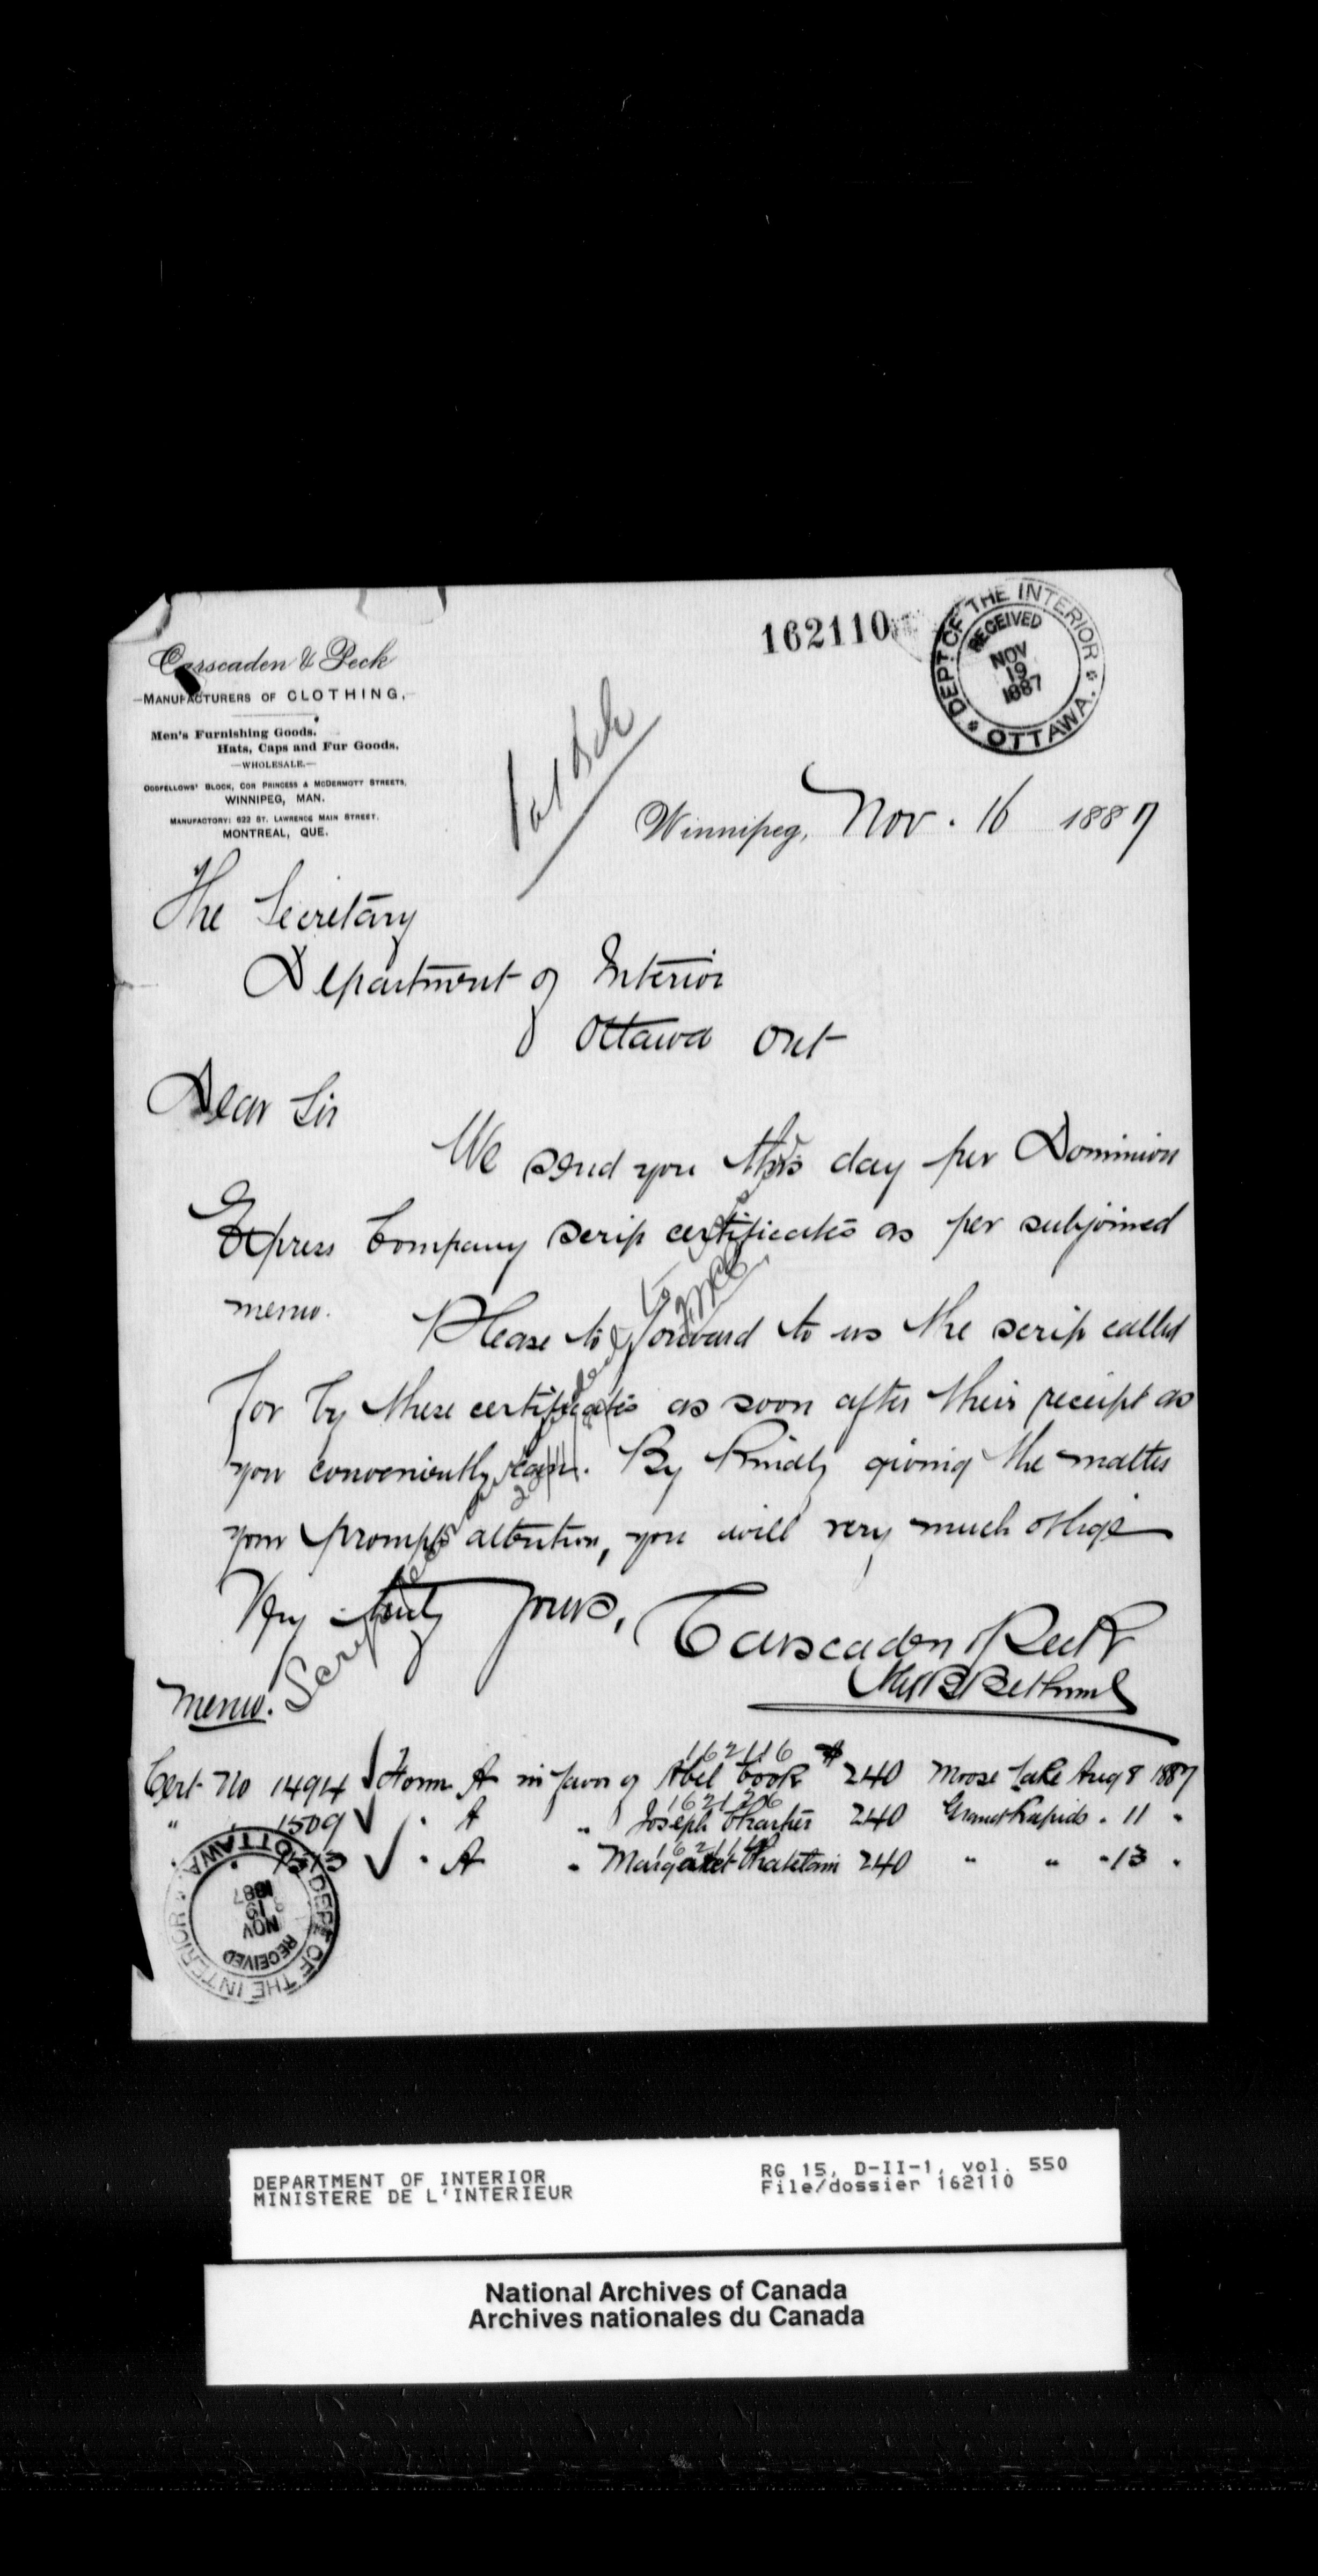 162110
DEPT. OF THE INTERIOR
RECEIVED
NOV
19
1887
OTTAWA.
Carscaden & Peck
MANUFACTURERS OF CLOTHING,
Men's Furnishing Goods.
Hats, Caps and Fur Goods.
—WHOLESALE.—
ODDFELLOWS' BLOCK, COR PRINCESS & MCDERMOTT STREETS,
WINNIPEG, MAN.
MANUFACTORY: 622 ST. LAWRENCE MAIN STREET,
MONTREAL, QUE.
Winnipeg, Nov. 16 1887
The Secretary
Department of Interior
Ottawa Ont
Dear Sir
We send you this day per Dominion
Express Company scrip certificates as per subjoined
memo. Please to forward to us the scrip called
for by these certificates as soon after their receipt as
you conveniently can. By kindly giving the matter
your prompt attention, you will very much oblige
Very truly yours, Carscaden & Peck
Memo. Scrip
162116
Cert. No 1494 Form A in favor of Abel Cook $240 Moose Lake Aug 8 1887
" 1509 " A " Joseph Chartier 240 Grand Rapids " 11 "
" " A " Margaret Chatelain 240 " " " 13 "
DEPT OF THE INTERIOR
RECEIVED
NOV
19
1887
OTTAWA
DEPARTMENT OF INTERIOR
MINISTERE DE L'INTERIEUR
RG 15, D-II-1, vol. 550
File/dossier 162110
National Archives of Canada
Archives nationales du Canada